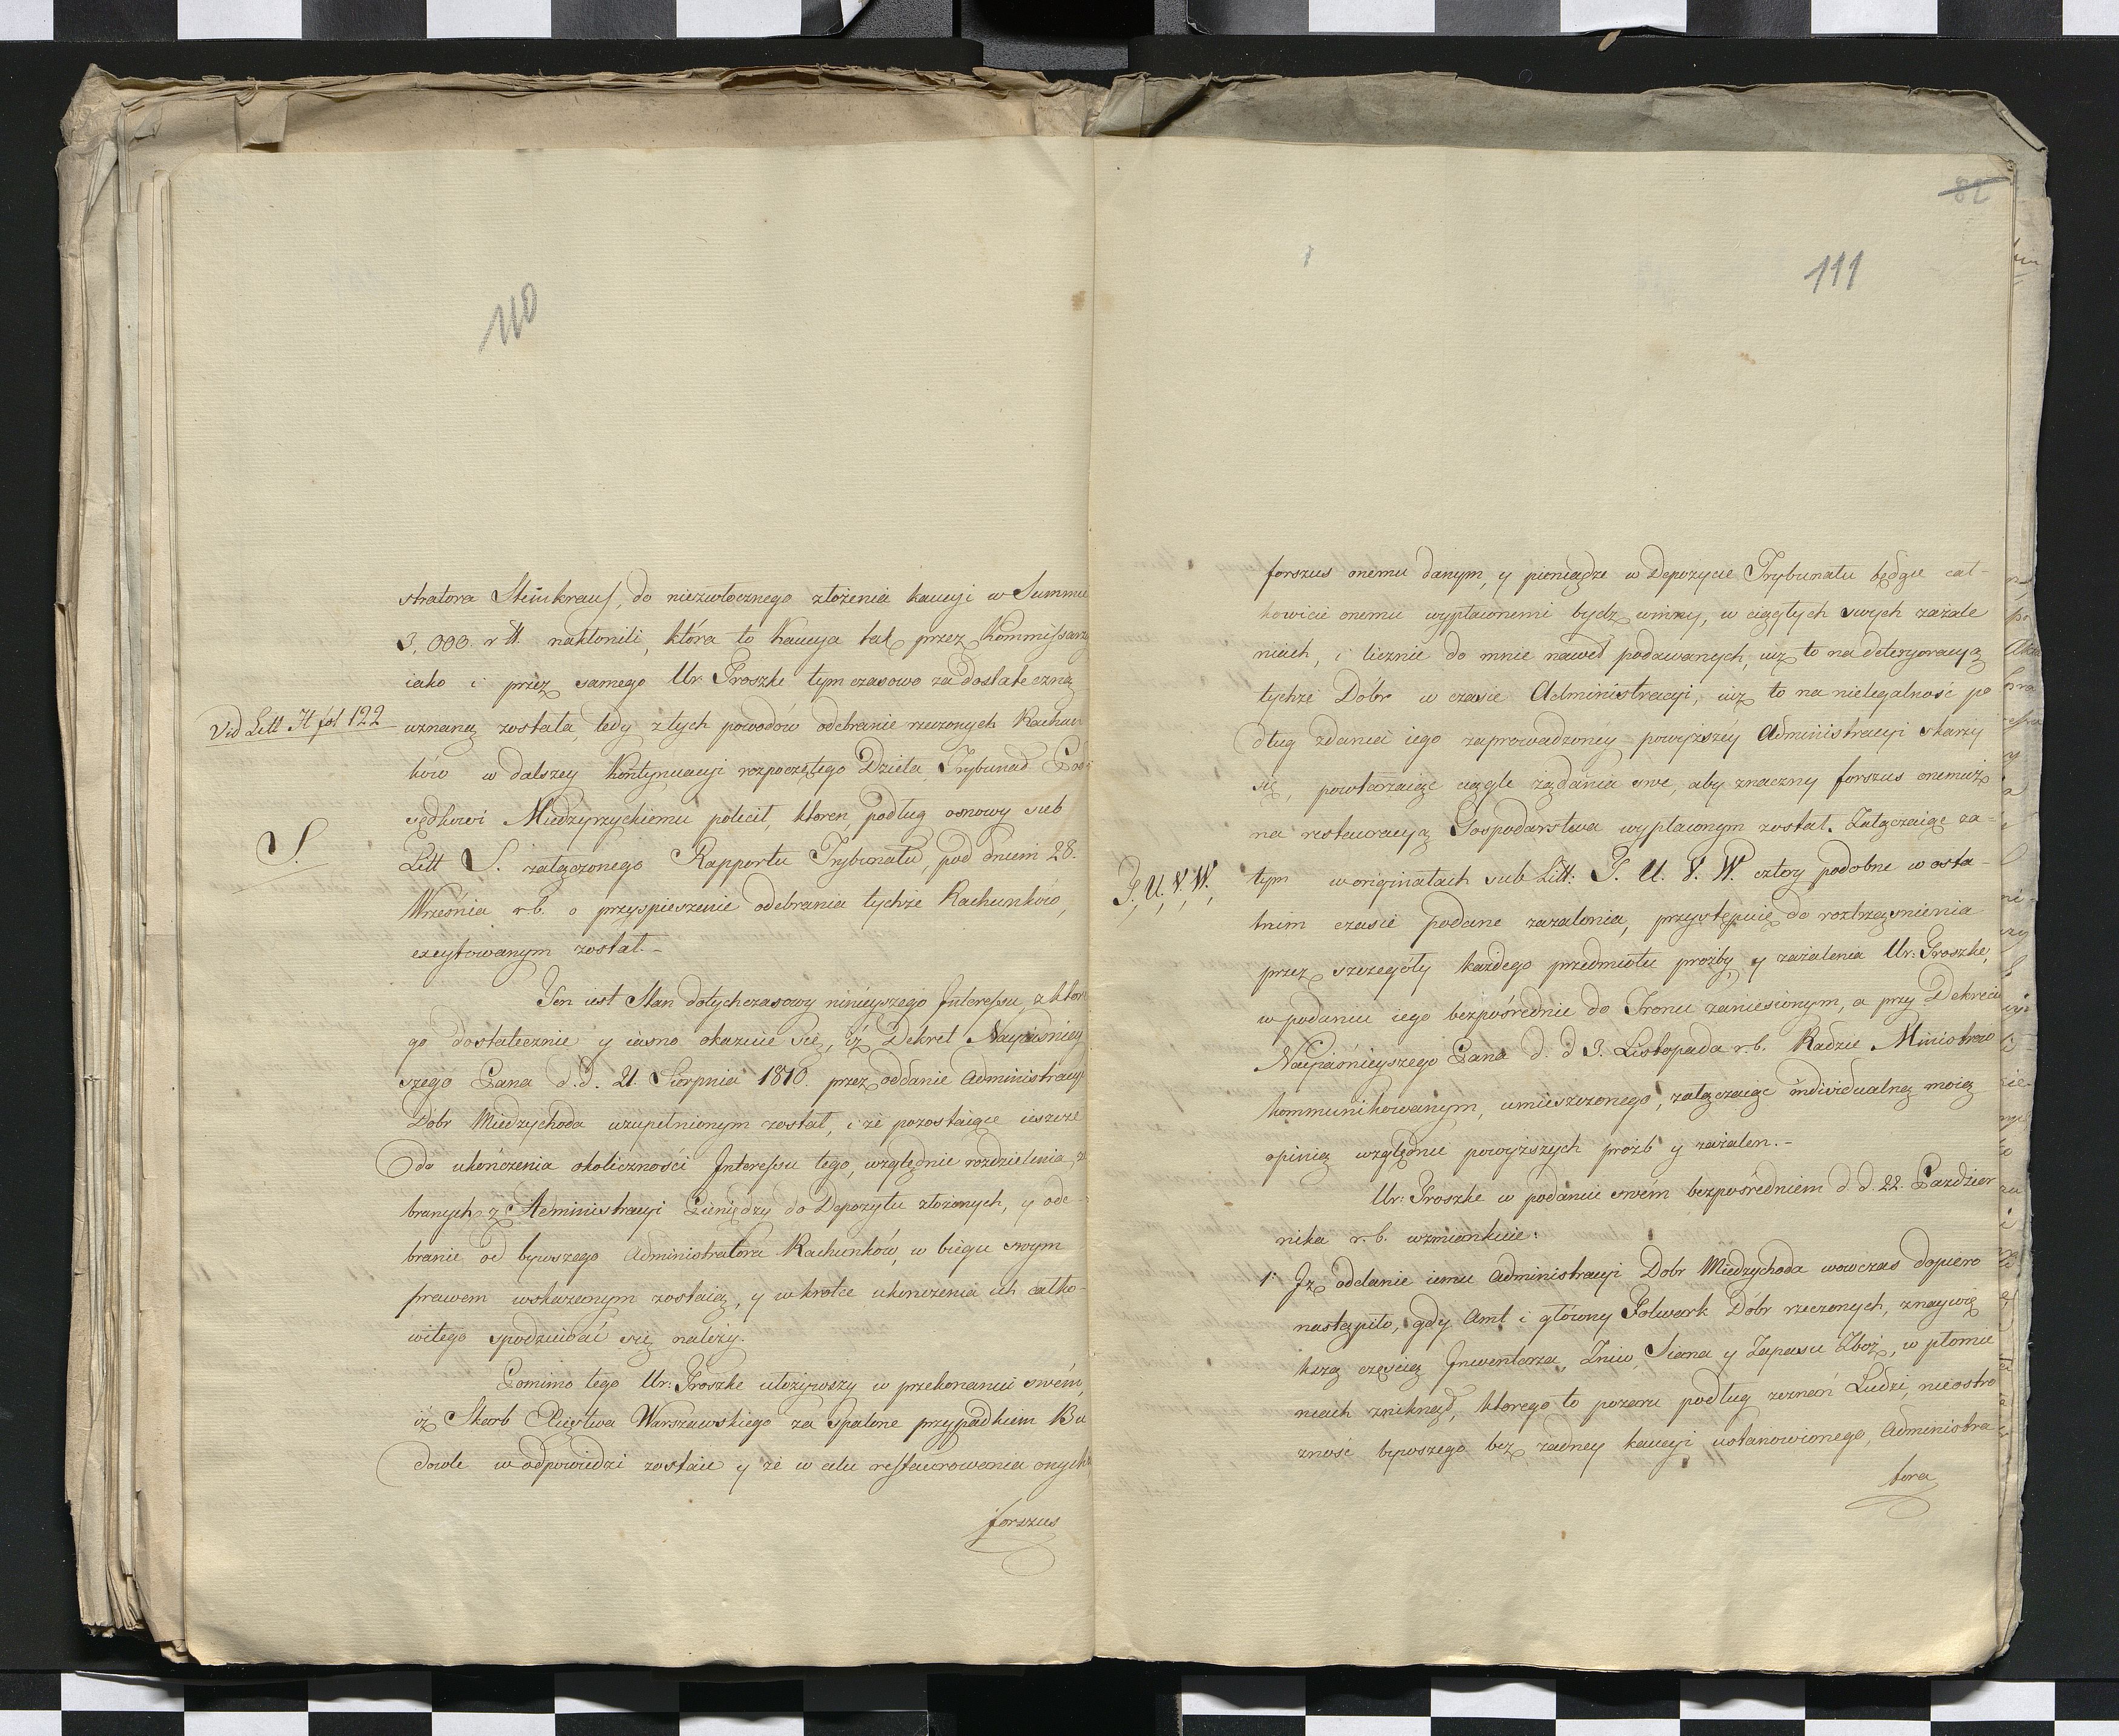 110
stratora Steinkrauss, do niezwłocznego złożenia kaucyi w Summie
3,000 r tt. nakłonili, która to Kaucya tak przez Kommissarz
iako i przez samego Ur Groszke tymczasowo za dostateczną
Vid Litt H fol 122
uznaną została, tedy z tych powodów odebranie rzeczonych Rachun
ków w dalszey Kontynuacyi rozpoczętego Dzieła, Trybunał Pod
sędkowi Miedzyrzyckiemu polecił, ktoren podług osnowy sub
S.
Litt S. załączonego Rapportu Trybunału, pod dniem 28.
Września r. b. o przyspieszenie odebrania tychże Rachunków,
excytowanym został. –
Ten iest Stan dotychczasowy ninieyszego Interessu, z które
go dostatecznie y iasno okazuie się, iż Dekret Nayiaśniey
szego Pana d. d. 21. Sierpnia 1810. przez oddanie Administracyi
Dóbr Miedzychoda uzupełnionym został, i że pozostaiące ieszcze
do ukończenia okoliczności Interessu tego, względnie rozdzielenia, ze
branych z Administracyi Pieniędzy do Depozytu złożonych, y ode-
branie od bywszego Administratora Rachunków, w biegu swym
prawem wskazanym zostaią, y wkrotce ukończenia ich całko-
witego spodziewać się należy.
Pomimo tego Ur: Groszke ułożywszy w przekonaniu swém,
iż Skarb Xięstwa Warszawskiego za spalone przypadkiem Bu
dowle w odpowiedzi zostaie y że w celu restaurowania onych
forszus
82
111
forszus onemu danym, y pieniądze w Depozycie Trybunału będące cał-
kowicie onemu wypłaconemi bydz winny, w ciągłych swych zażale
niach, i licznie do mnie nawet podawanych, iuż to na deteryoracyą
tychże Dóbr w czasie Administracyi, iuż to na nielegalność po
dług zdania iego zaprowadzoney powyższey Administracyi skarży
się, powtarzaiąc ciągle żądania swe, aby znaczny forszus onemuż
na restauracyą Gospodarstwa wypłaconym został. Załączaiąc za-
T, U, V, W.
tym w originałach sub Litt: T. U. V. W. cztery podobne w osta-
tnim czasie podane zażalenia, przystępuię do roztrząsnienia
przez szczegóły każdego przedmiotu proźby, y zażalenia Ur: Groszke,
w podaniu iego bezpośrednie do Tronu zaniesionym, a przy Dekrecie
Nayiaśnieyszego Pana d. d 3. Listopada r. b. Radzie Ministrow
kommunikowanym, umieszczonego, załączaiąc individualną moią
opinią względnie powyższych próźb y zażalen. –
Ur: Groszke w podaniu swém bezpośredniem d. d. 22. Paździer
nika r. b. wzmiankuie:
1. Jż oddanie iemu Administracyi Dobr Miedzychoda wowczas dopiero
nastąpiło, gdy Amt i główny Folwark Dóbr rzeczonych, z naywię
kszą częścią Inwentarza, Żniw, Siana y Zapasu Zboż, w płomie
niach zniknął, którego to pożaru podług zeznań Ludzi, nieostro
żność bywszego bez żadney kaucyi ustanowionego, Administra
tora